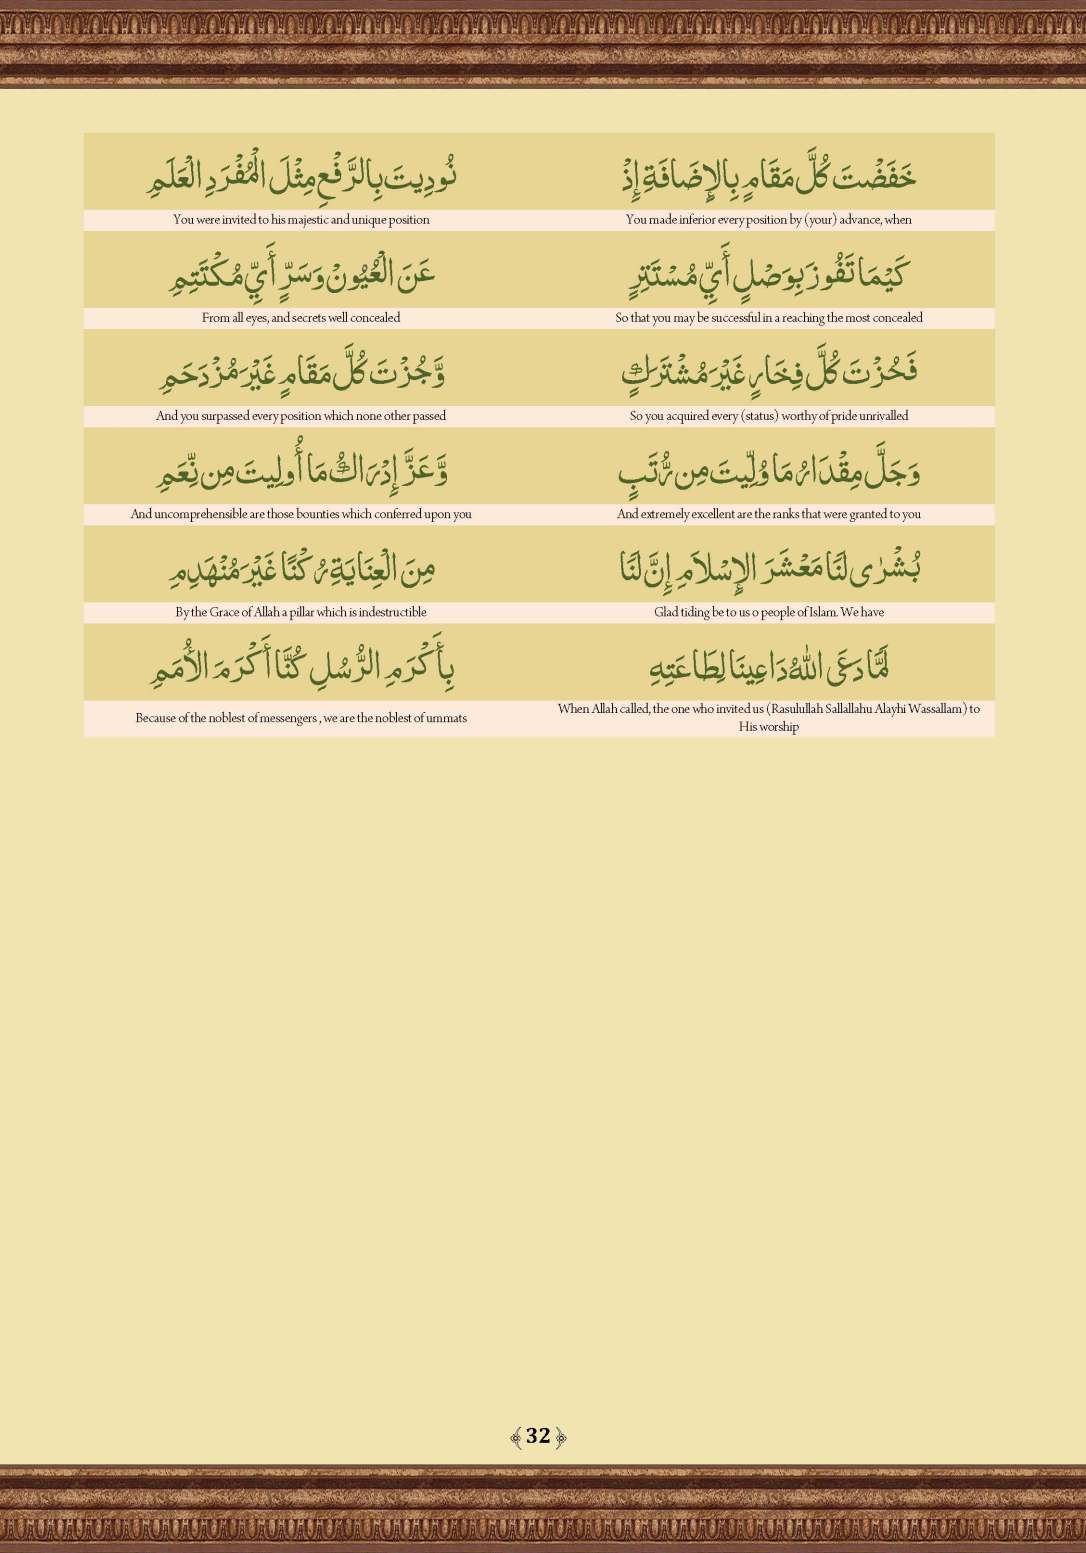 خَفَضْتَ كُلَّ مَقَامٍ بِالإِضَافَةِ إِذْ نُودِيتَ بِالرَّفْعِ مِثْلَ الْمُفْرَدِ الْعَلَمِ
You made inferior every position by (your) advance, when You were invited to his majestic and unique position
كَيْمَا تَفُوزَ بِوَصْلٍ أَيِّ مُسْتَتِرٍ عَنَ الْعُيُونْ وَسَرٍّ أَيِّ مُكْتَتِمِ
So that you may be successful in a reaching the most concealed From all eyes, and secrets well concealed
فَحُزْتَ كُلَّ فِخَارٍ غَيْرَ مُشْتَرَكٍ وَّجُزْتَ كُلَّ مَقَامٍ غَيْرَ مُزْدَحَمِ
So you acquired every (status) worthy of pride unrivalled And you surpassed every position which none other passed
وَجَلَّ مِقْدَارُ مَا وُلِّيتَ مِن رُّتَبٍ وَّعَزَّ إِدْرَاكُ مَا أُولِيتَ مِن نِّعَمِ
And extremely excellent are the ranks that were granted to you And uncomprehensible are those bounties which conferred upon you
بُشْرٰى لَنَا مَعْشَرَ الإِسْلاَمِ إِنَّ لَنَا مِنَ الْعِنَايَةِ رُكْنًا غَيْرَ مُنْهَدِمِ
Glad tiding be to us o people of Islam. We have By the Grace of Allah a pillar which is indestructible
لَمَّا دَعَى اللهُ دَاعِينَا لِطَاعَتِهِ بِأَكْرَمِ الرُّسُلِ كُنَّا أَكْرَمَ الأُمَمِ
When Allah called, the one who invited us (Rasulullah Sallallahu Alayhi Wassallam) to
His worship
Because of the noblest of messengers , we are the noblest of ummats
32